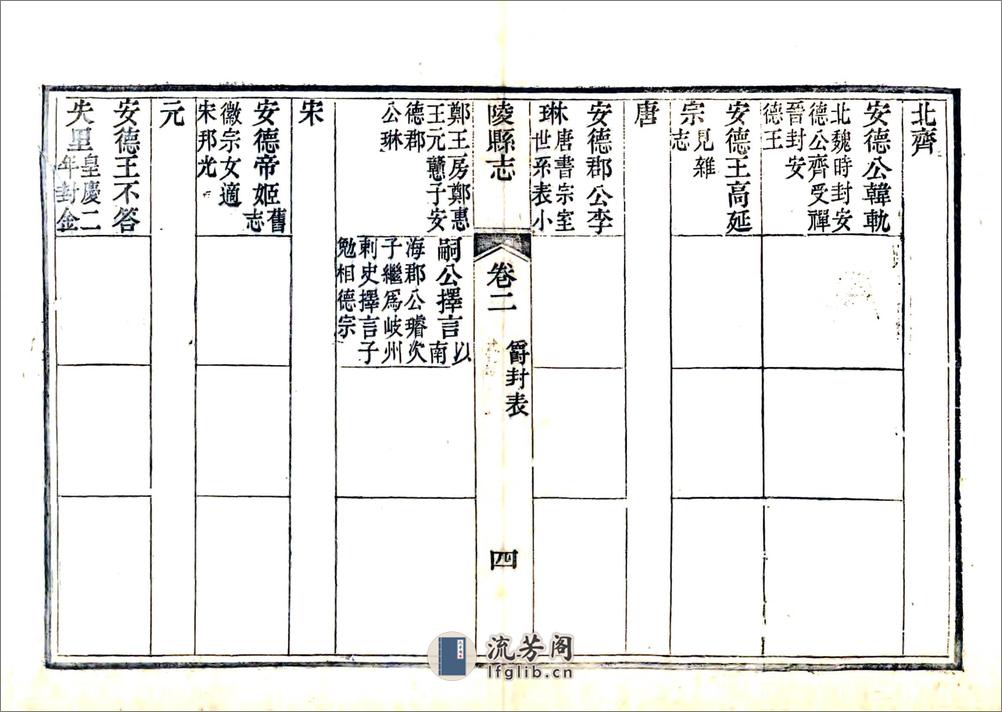 北齊
安德公韓軌
北魏時封安
德公齊受禪
晉封安
德王
安德王高延
宗見雜
志
唐
安德郡公李
琳唐書宗室
世系表小
陵縣志
卷二
爵封表
四
鄭王房鄭惠
王元懿子安
德郡
公琳
嗣公擇言以南
海郡公璿次
子繼爲岐州
刺史擇言子
勉相德宗
宋
安德帝姬舊志
徽宗女適
宋邦光
元
安德王不答
失里皇慶二
年封金
流芳阁
lfglib.cn